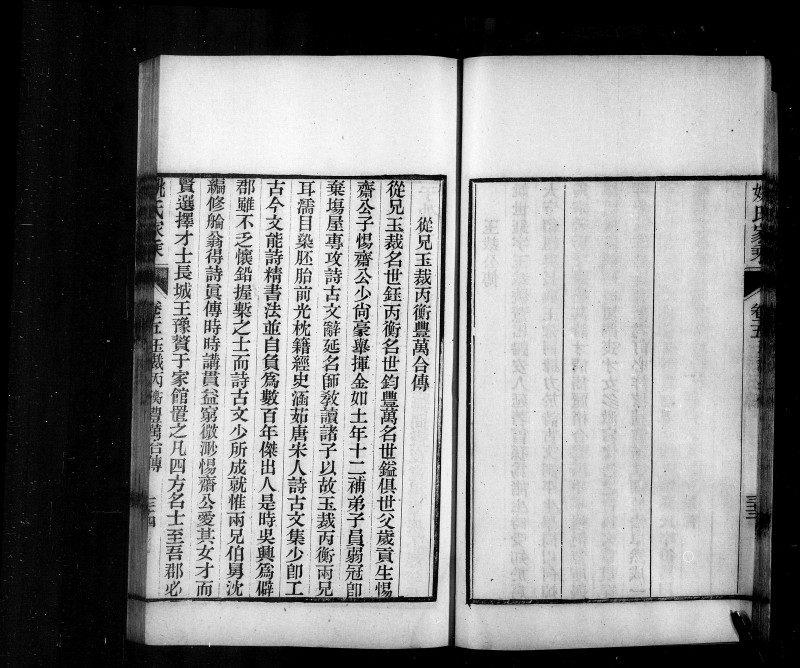 姚氏家乘
卷五
三三
從兄玉裁丙衡豐萬合傳
從兄玉裁名世鈺丙衡名世鈞豐萬名世鎰俱世父歲貢生惕
齋公子惕齋公少尚豪舉揮金如土年十二補弟子員弱冠卽
棄塲屋專攻詩古文辭延名師敎讀諸子以故玉裁丙衡兩兄
耳濡目染胚胎前光枕籍經史涵茹唐宋人詩古文集少卽工
古今文能詩精書法並自負爲數百年傑出人是時吳興爲僻
郡雖不乏懷鉛握槧之士而詩古文少所成就惟兩兄伯舅沈
編修艑翁得詩眞傳時時講貫益窮微渺惕齋公愛其女才而
賢選擇才士長城王豫贅于家館置之凡四方名士至吾郡必
姚氏家乘
卷五玉裁丙衡豐萬合傳
三四